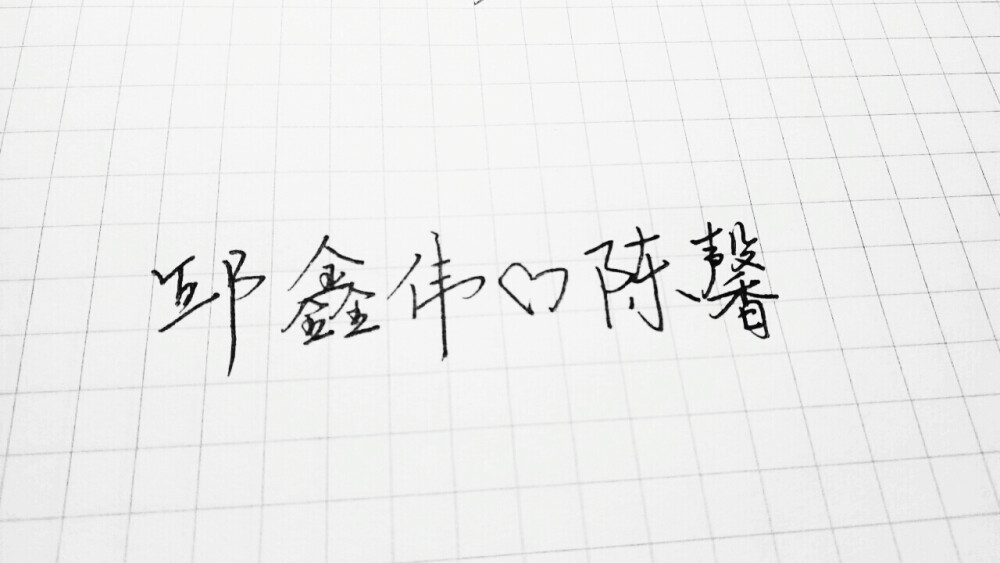 邱鑫伟♡陈馨